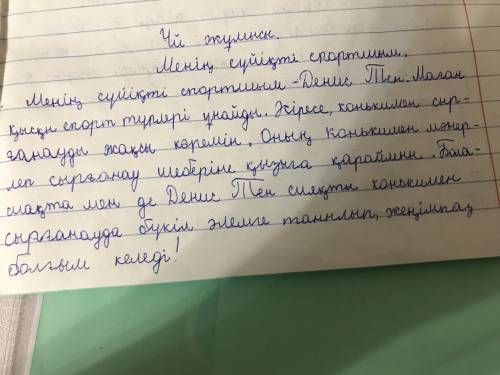 Үй жұмысы.
Менің сүйікті спортшым.
Менің сүйікті спортшым - Денис Тен. Маған
қысқы спорт түрлері ұнайды. Әсіресе, конькимен сыр-
ғанауды жақсы көремін. Оның конькимен мәнер-
леп сырғанау шеберіне қызыға қараймын. Бола-
шақта мен де Денис Тен сияқты конькимен
сырғанауда бүкіл әлемге танылып, жеңімпаз
болғым келеді!